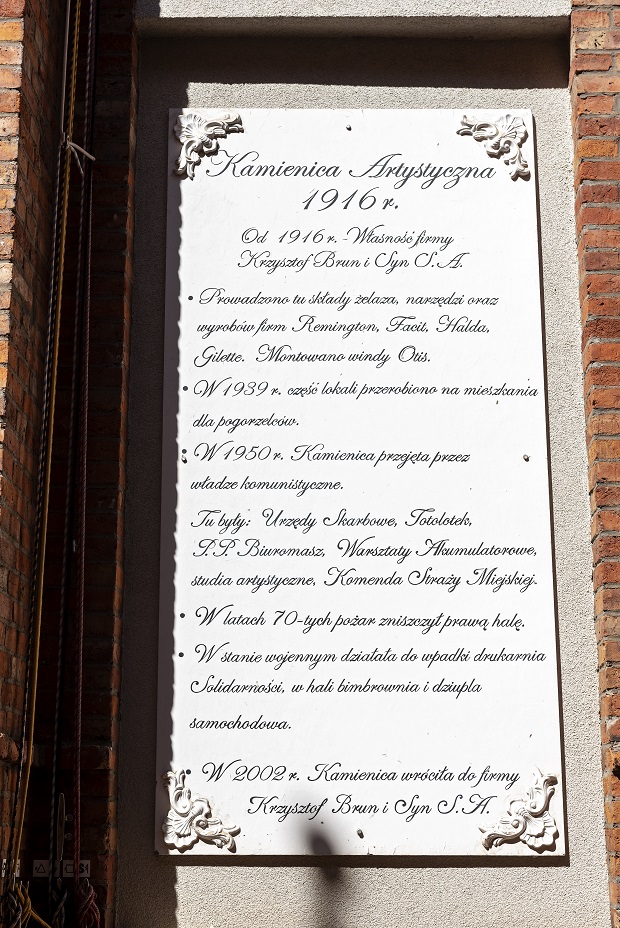 Kamienica Artystyczna
1916 r.
Od 1916 r. - Własność firmy
Krzysztof Brun i Syn S.A.
• Prowadzono tu składy żelaza, narzędzi oraz
wyrobów firm Remington, Facit, Halda,
Gilette. Montowano windy Otis.
• W 1939 r. część lokali przerobiono na mieszkania
dla pogorzelców.
• W 1950 r. Kamienica przejęta przez
władze komunistyczne.
Tu były: Urzędy Skarbowe, Totolotek,
P.P. Biuromasz, Warsztaty Akumulatorowe,
studia artystyczne, Komenda Straży Miejskiej.
• W latach 70-tych pożar zniszczył prawą halę.
• W stanie wojennym działała do wpadki drukarnia
Solidarności, w hali bimbrownia i dziupla
samochodowa.
• W 2002 r. Kamienica wróciła do firmy
Krzysztof Brun i Syn S.A.